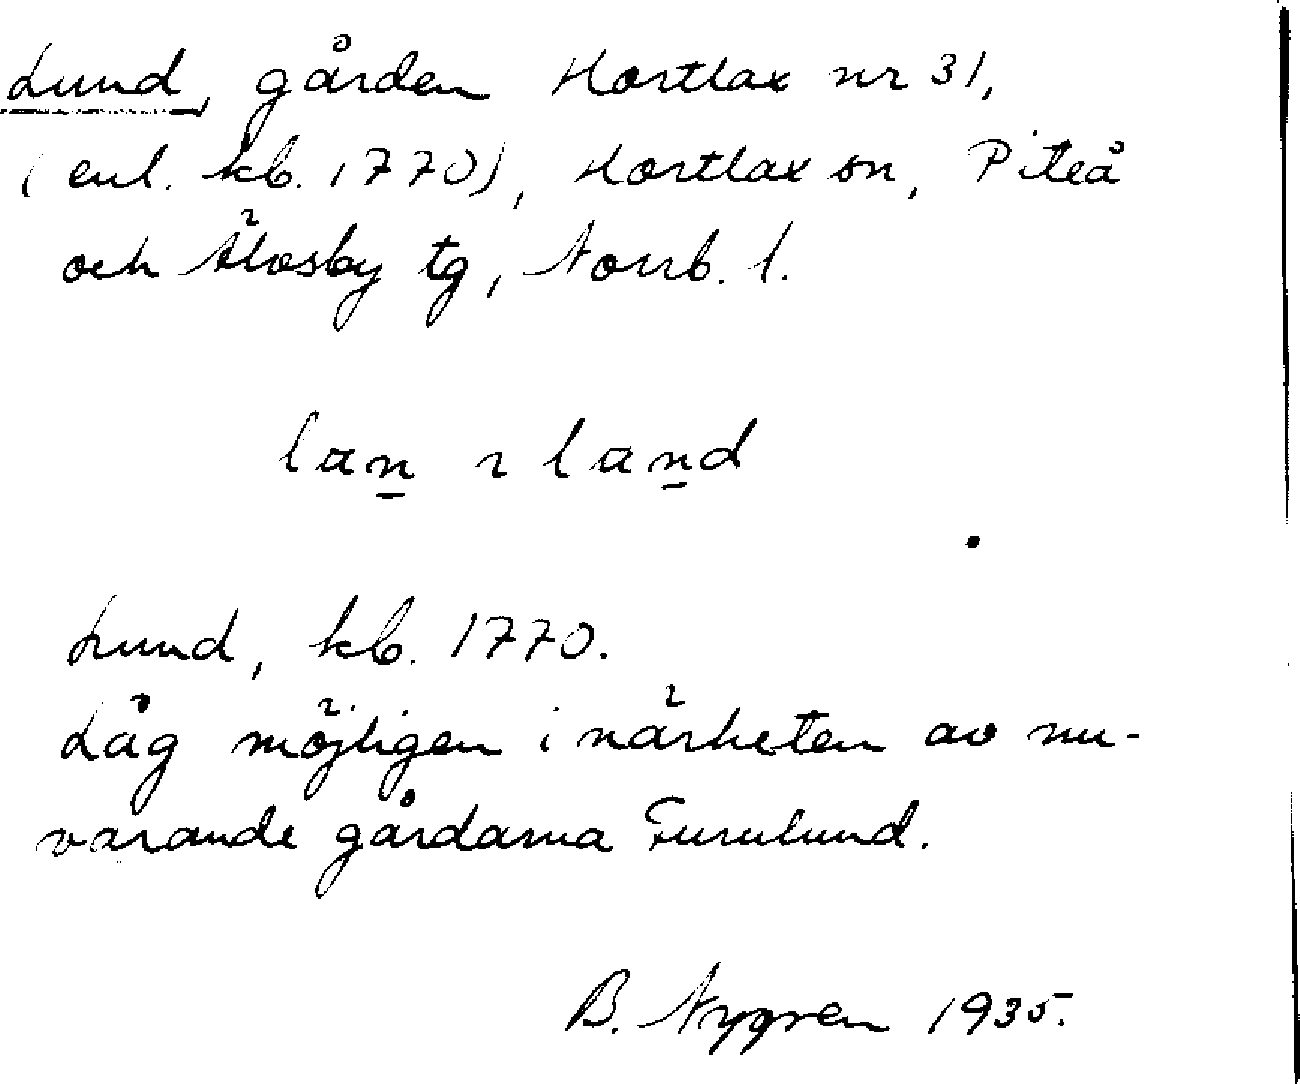 Lund, gården Hortlax nr 31,
(enl. kb. 1770), Hortlax sn, Piteå
och Älvsby tg, Norrb. l.
lan̲ ~ lan̲d
Lund, kb. 1770.
Låg möjligen i närheten av nu-
varande gårdarna Furulund.
B. Nygren 1935.